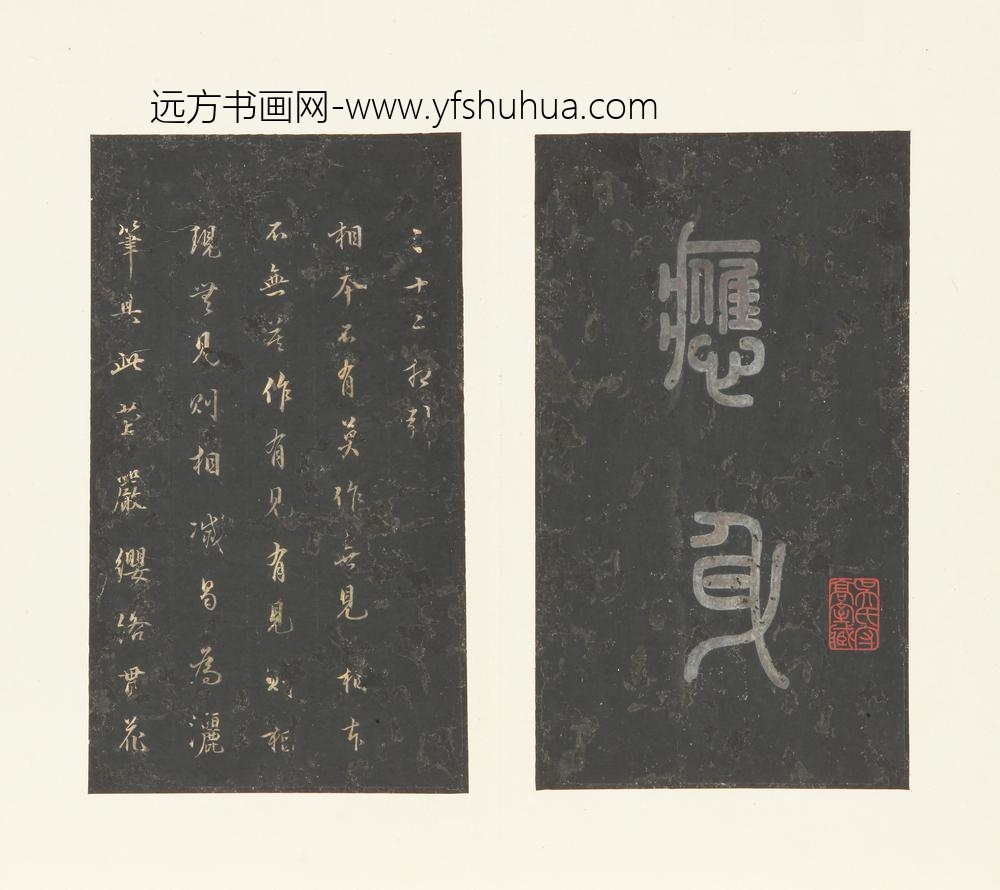 远方书画网-www.yfshuhua.com
應身
三十二相引
相本不有莫作無見相本
不無莫作有見有見則相
現無見則相滅曷為灑
筆具此莊嚴纓絡貫花